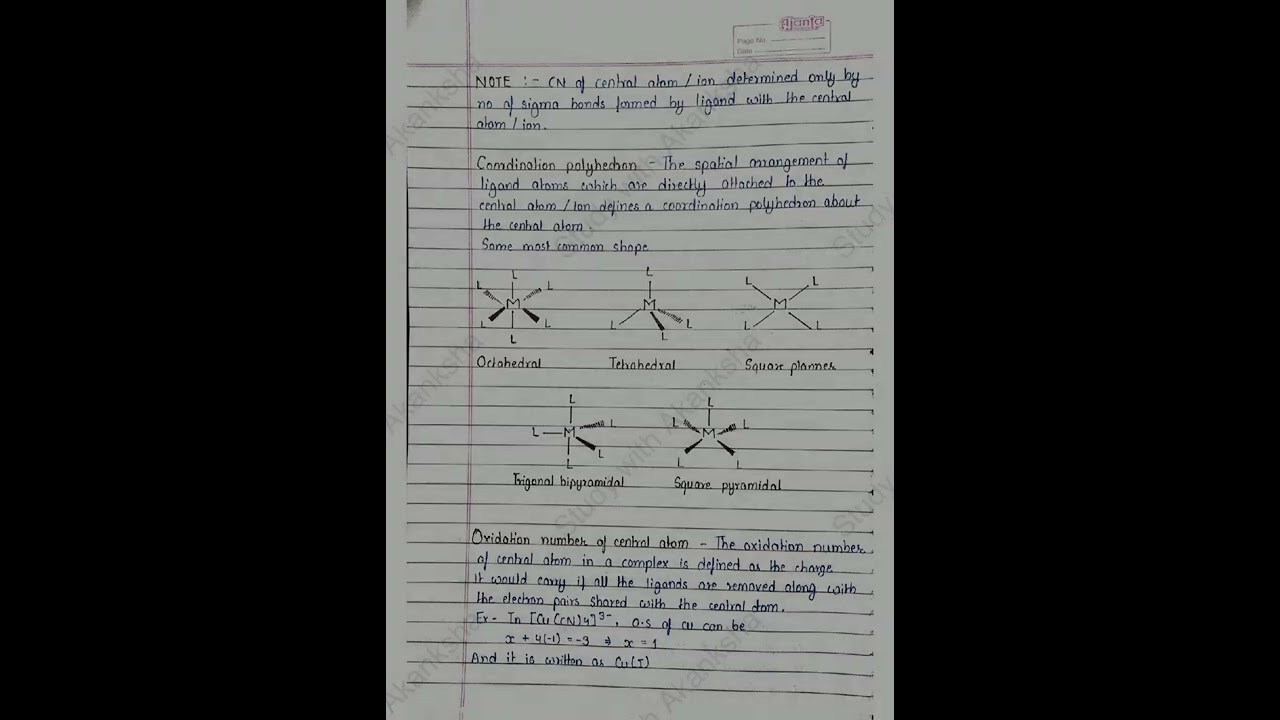 Ajanta
Page No.
Date
NOTE :- CN of central atom / ion determined only by
no of sigma bonds formed by ligand with the central
atom / ion.
Coordination polyhedron - The spatial arrangement of
ligand atoms which are directly attached to the
central atom / ion defines a coordination polyhedron about
the central atom.
Some most common shape
L
L L
M
L L
L
L
M
L L
L
L L
M
L L
Octahedral Tetrahedral Square planner
L
L M L
L
L
L
L L
M
L L
Trigonal bipyramidal Square pyramidal
Oxidation number of central atom - The oxidation number
of central atom in a complex is defined as the charge
it would carry if all the ligands are removed along with
the electron pairs shared with the central atom.
Ex - In [Cu(CN)4]3-, O.S of Cu can be
x + 4(-1) = -3 ⇒ x = 1
And it is written as Cu(I)
Study with Akanksha